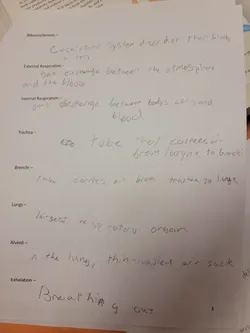 Atherosclerosis –
system disorder that
External Respiration –
gas exchange between the atmosphere
and the blood
Internal Respiration –
gas exchange between bodys cells and
blood.
Trachea –
tube that
from larynx to bronchi
Bronchi –
tube air from trachea to lungs
Lungs –
largest respiratory organ
Alveoli –
in the lungs, thin-walled air sack
Exhalation –
Breathing out